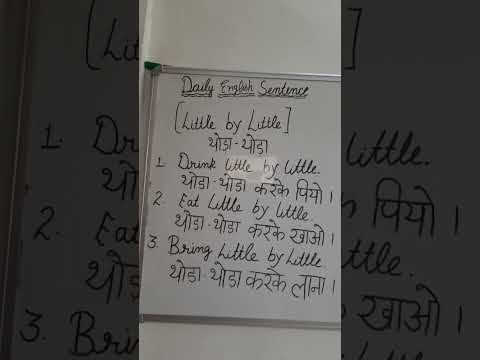 Daily English Sentence
[Little by Little]
थोडा - थोडा
1. Drink little by little.
थोडा - थोडा करके पियो ।
2. Eat Little by little.
थोडा - थोडा करके खाओ ।
3. Bring Little by Little.
थोडा - थोडा करके लाना ।